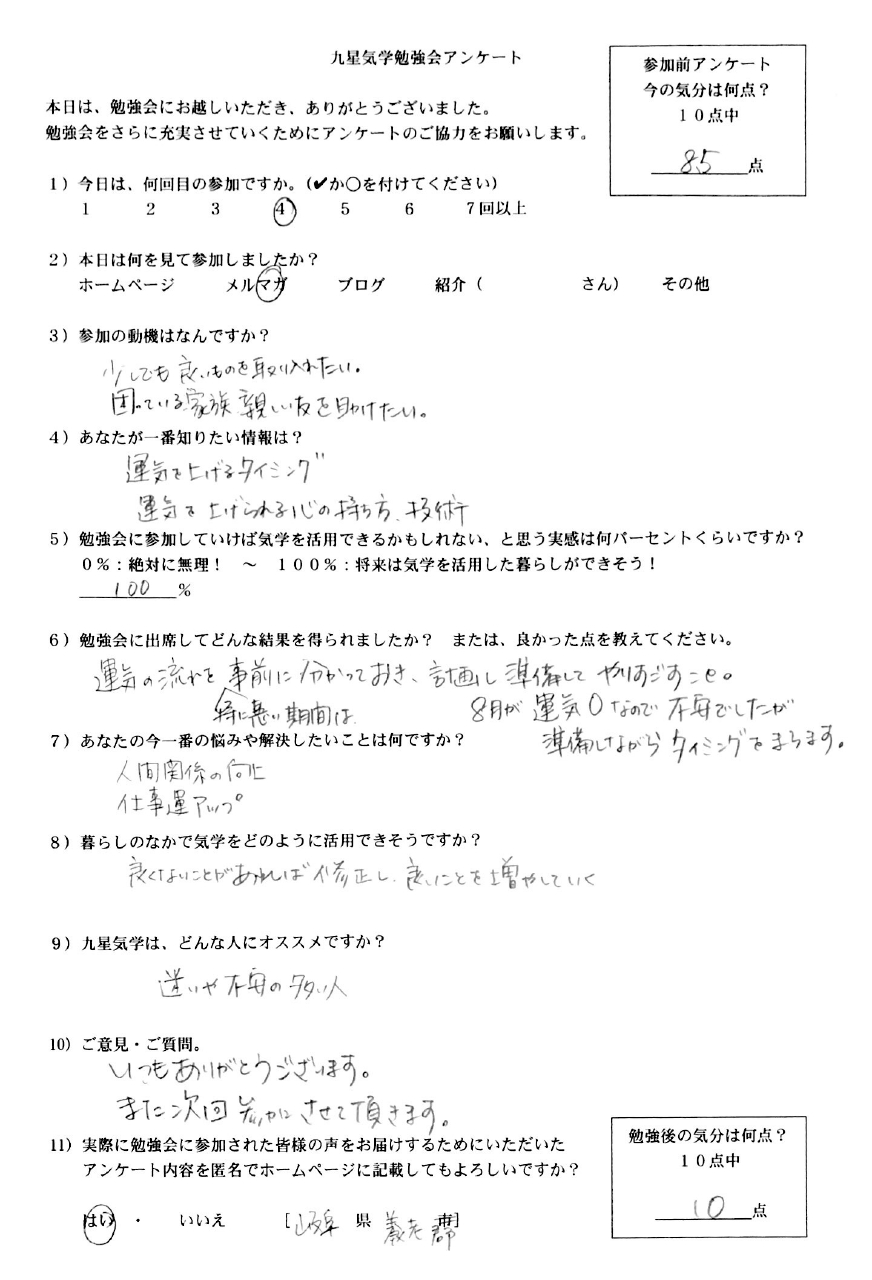 九星気学勉強会アンケート
参加前アンケート
今の気分は何点？
１０点中
8.5 点
本日は、勉強会にお越しいただき、ありがとうございました。
勉強会をさらに充実させていくためにアンケートのご協力をお願いします。
１）今日は、何回目の参加ですか。（✔か○を付けてください）
１ ２ ３ ４ ５ ６ ７回以上
２）本日は何を見て参加しましたか？
ホームページ メルマガ ブログ 紹介（ さん） その他
３）参加の動機はなんですか？
少しでも良いものを取り入れたい。
困っている家族 親しい友を助けたい。
４）あなたが一番知りたい情報は？
運気を上げるタイミング
運気を上げられる心の持ち方、技術
５）勉強会に参加していけば気学を活用できるかもしれない、と思う実感は何パーセントくらいですか？
０％：絶対に無理！ ～ １００％：将来は気学を活用した暮らしができそう！
100 ％
６）勉強会に出席してどんな結果を得られましたか？ または、良かった点を教えてください。
運気の流れを事前に分かっておき、計画し準備してやりすごすこと。
特に悪い期間は 8月が運気0なので不安でしたが
準備しながらタイミングをまちます。
７）あなたの今一番の悩みや解決したいことは何ですか？
人間関係の向上
仕事運アップ
８）暮らしのなかで気学をどのように活用できそうですか？
良くないことがあれば修正し、良いことを増やしていく
９）九星気学は、どんな人にオススメですか？
迷いや不安の多い人
10）ご意見・ご質問。
いつもありがとうございます。
また次回参加させて頂きます。
11）実際に勉強会に参加された皆様の声をお届けするためにいただいた
アンケート内容を匿名でホームページに記載してもよろしいですか？
はい ・ いいえ ［岐阜 県 養老郡 市］
勉強後の気分は何点？
１０点中
10 点